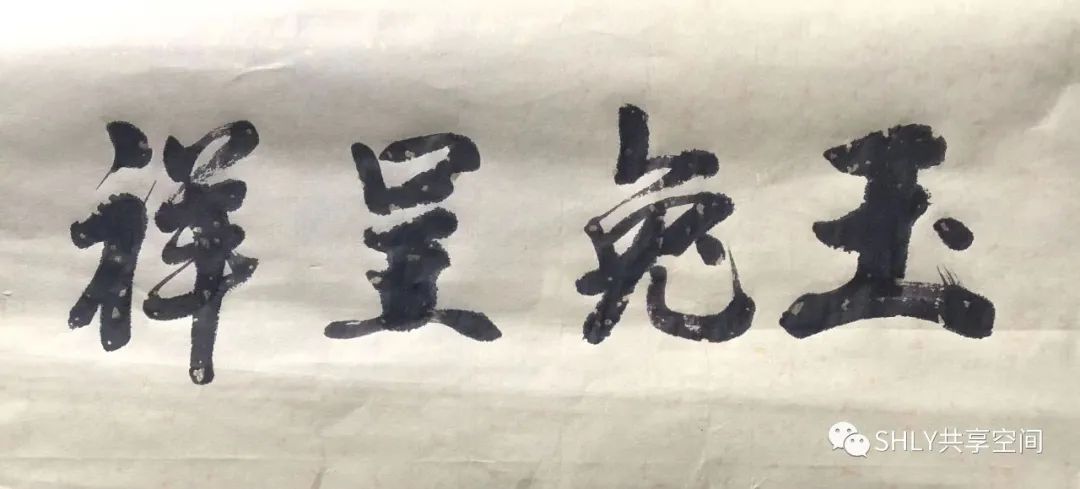 玉兔呈祥
SHLY共享空间